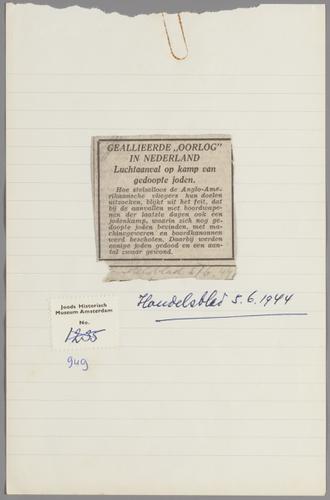 GEALLIEERDE „OORLOG"
IN NEDERLAND
Luchtaanval op kamp van
gedoopte joden.
Hoe stelselloos de Anglo-Ame-
rikaansche vliegers hun doelen
uitzoeken, blijkt uit het feit, dat
bij de aanvallen met boordwape-
nen der laatste dagen ook een
jodenkamp, waarin zich nog ge-
doopte joden bevinden, met ma-
chinegeweren en boordkanonnen
werd beschoten. Daarbij werden
eenige joden gedood en een aan-
tal zwaar gewond.
Handelsblad 5.6.1944
Joods Historisch
Museum Amsterdam
No.
1235
949